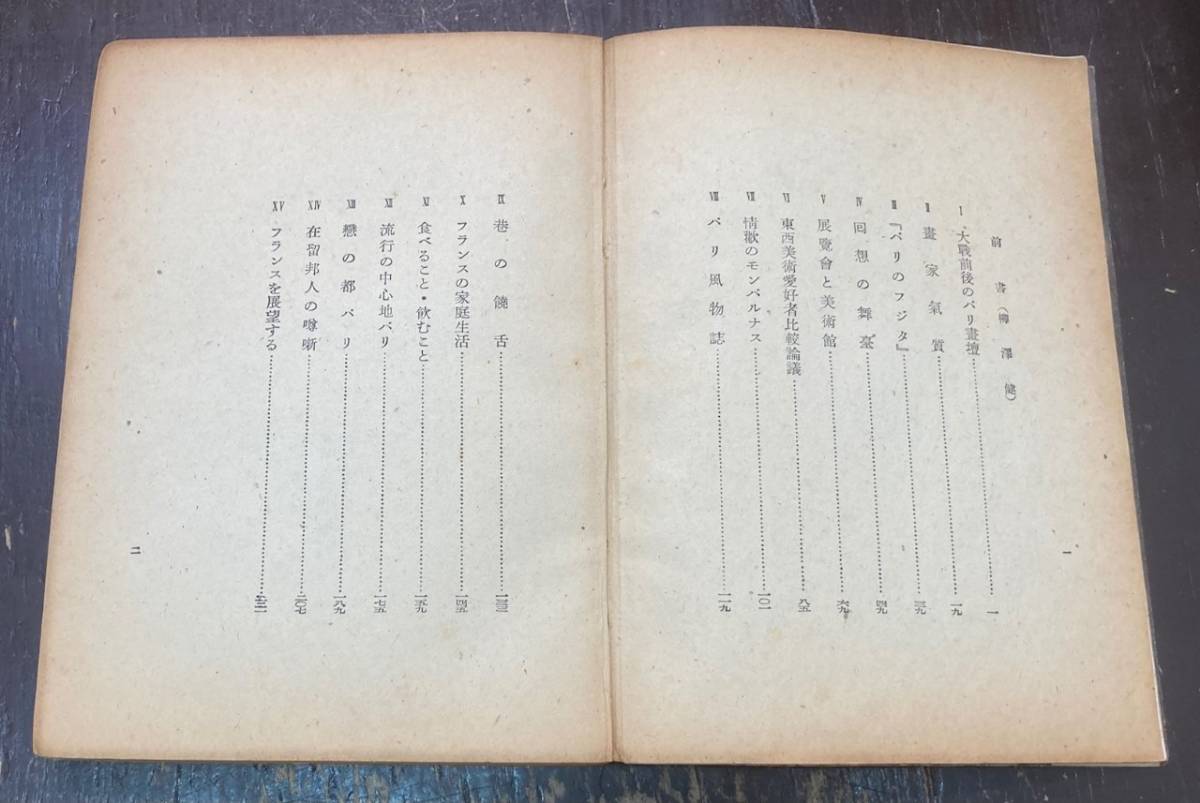 前書(柳澤健)
I 大戰前後のパリ畫壇……一
II 畫家氣質……一九
III 『パリのフジタ』……三九
IV 回想の舞臺……四九
V 展覽會と美術館……六九
VI 東西美術愛好者比較論議……八五
VII 情歡のモンパルナス……一〇一
VIII パリ風物誌……一一九
一
IX 巷の饒舌……一三三
X フランスの家庭生活……一四五
XI 食べること・飮むこと……一五九
XII 流行の中心地パリ……一七五
XIII 戀の都パリ……一八九
XIV 在留邦人の噂噺……二〇七
XV フランスを展望する
二